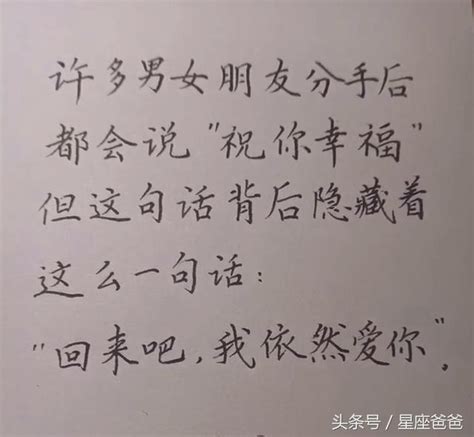 许多男女朋友分手后
都会说"祝你幸福"
但这句话背后隐藏着
这么一句话：
"回来吧,我依然爱你".
头条号 / 星座爸爸